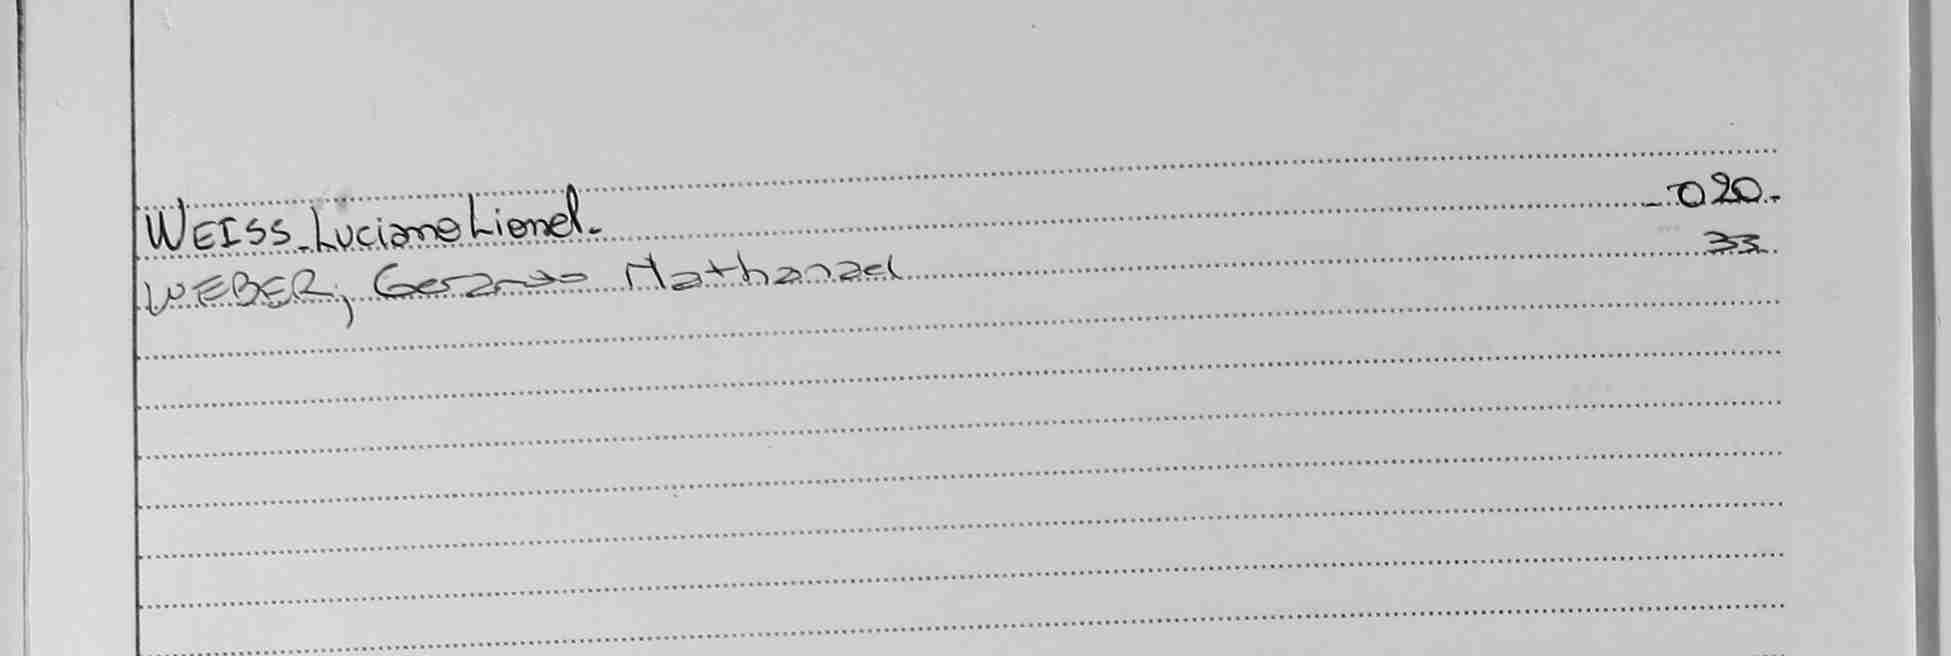 WEISS Luciano Lionel. 020.
WEBER, Gerardo Nathanael 33